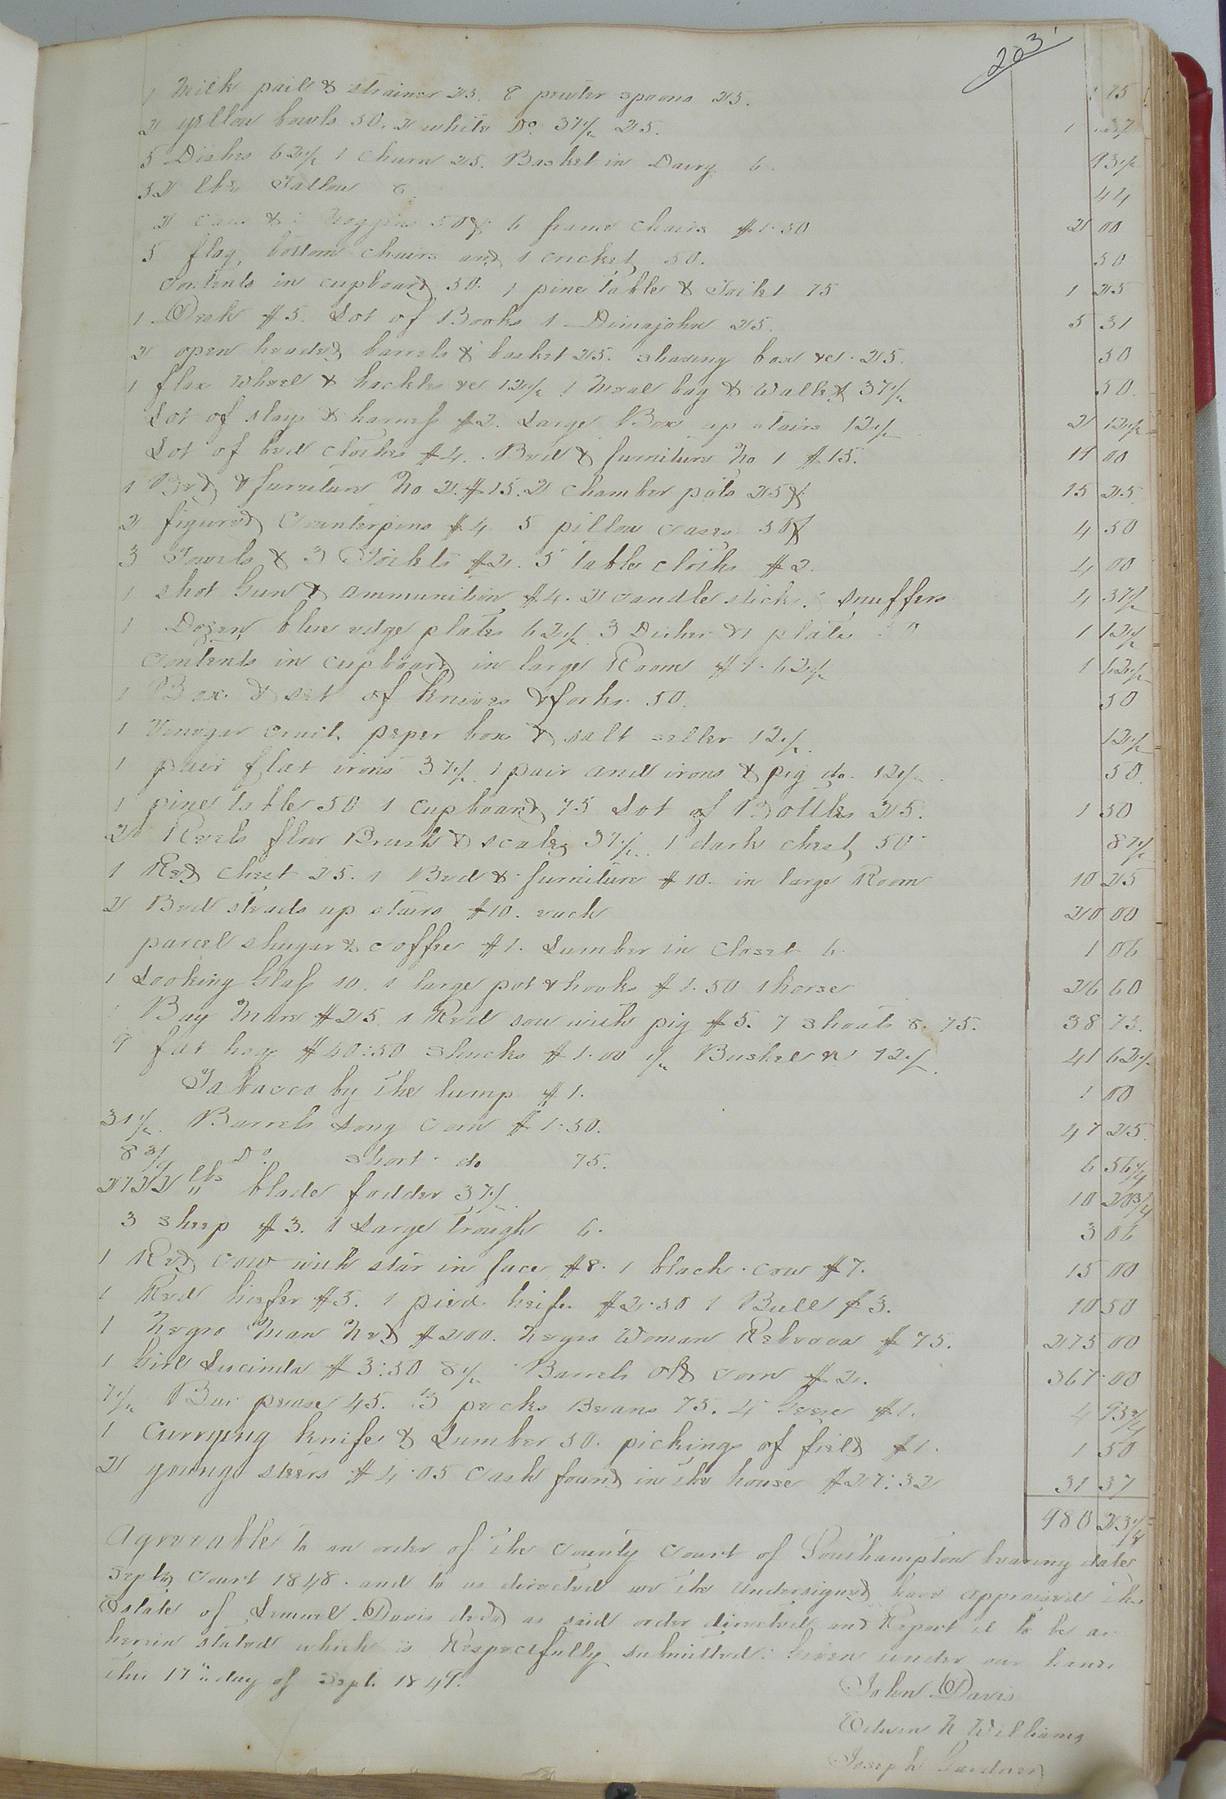 203
1 Milk pail & strainer 25. 8 pewter spoons 25. 75
2 yellow bowls 50. 2 white Do 37½ 25. 1
5 Dishes 62½ 1 Churn 25. Basket in Dairy 6. 93½
52 lbs Tallow 44
2 & Noggins 50¢ 6 frame chairs $1.50 2 00
5 flag bottom chairs and 1 cricket 50. 50
Contents in cupboard 50. 1 pine table & Toilet 75 1 25
1 Desk $5. Lot of Books 1 Dimajohn 25. 5 31
2 open headed barrels & basket 25. shaving box &c. 25. 50
1 flax wheel & hackles &c 12½ 1 Meal bag & Wallet 37½ 50.
Lot of slays & harness $2. Large Box up stairs 12½ 2 12½
Lot of bed clothes $4. Bed & furniture No 1 $15. 19 00
1 Bed & furniture No 2. $15. 2 chamber pots 25¢. 15 25
2 figured Counterpins $4 5 pillow cases 50¢ 4 50
3 Towels & 3 Toilets $2. 5 table cloths $2. 4 00
1 shot Gun & ammunition $4. 2 candle sticks & snuffers 4 37½
1 Dozen blue edge plates 62½ 3 Dishes & 1 plate 50 1 12½
Contents in cupboard in large Room $1.62½ 1 62½
1 Box & set of knives & forks 50. 50
1 Vinegar cruit, peper box & salt seller 12½. 12½
1 pair flat irons 37½ 1 pair and irons & pig do. 12½ 50
1 pine table 50 1 cupboard 75 Lot of Bottles 25. 1 50
2 Reels flour Brush & scales 37½. 1 dark chest, 50 87½
1 Red chest 25. 1 Bed & furniture $10. in large Room 10 25
2 Bed steads up stairs $10. each 20 00
parcel shugar & coffee $1. Lumber in closet 6 1 06
1 Looking Glass 10. 1 large pot & hooks $1.50 1 horse 26 60
1 Bay Mare $25 1 Red sow with pig $5. 7 shoats 8.75. 38 75.
9 fat hogs $40:50 shucks $1.00 ½ Bushel 12½. 41 62½
Tobacco by the lump $1. 1 00
31½. Barrels Long Corn $1.50. 47 25
8¾ Do. short do 75. 6 56¼
2722 lbs blade fodder 37½ 10 20¾
3 sheep $3. 1 Large trough 6. 3 06
1 Red cow with star in face $8. 1 black cow $7. 15 00
1 Red heifer $5. 1 pied heifer $2.50 1 Bull $3. 10 50
1 Negro Man Ned $200. Negro Woman Rebecca $75. 275 00
1 Girl Lucinda $350 8½ Barrels old corn $2. 367 00
7½ Bus pease 45. 3 pecks Beans 75. 4 Geese $1. 4 93¾
1 Currying knife & Lumber 50. pickings of field $1. 1 50
2 young steers $4.05 Cash found in the house $27:32 31 37
980 23¼
Agreeable to an order of the County Court of Southampton bearing date
Septr Court 1848. and to us directed we the undersigned have appraised the
Estate of Lemuel Davis decd as said order directed and Report it to be as
herein stated which is Respectfully submitted: Given under our hands
this 17th day of Sept. 1849.
John Davis
Edwin N Williams
Joseph Gardner